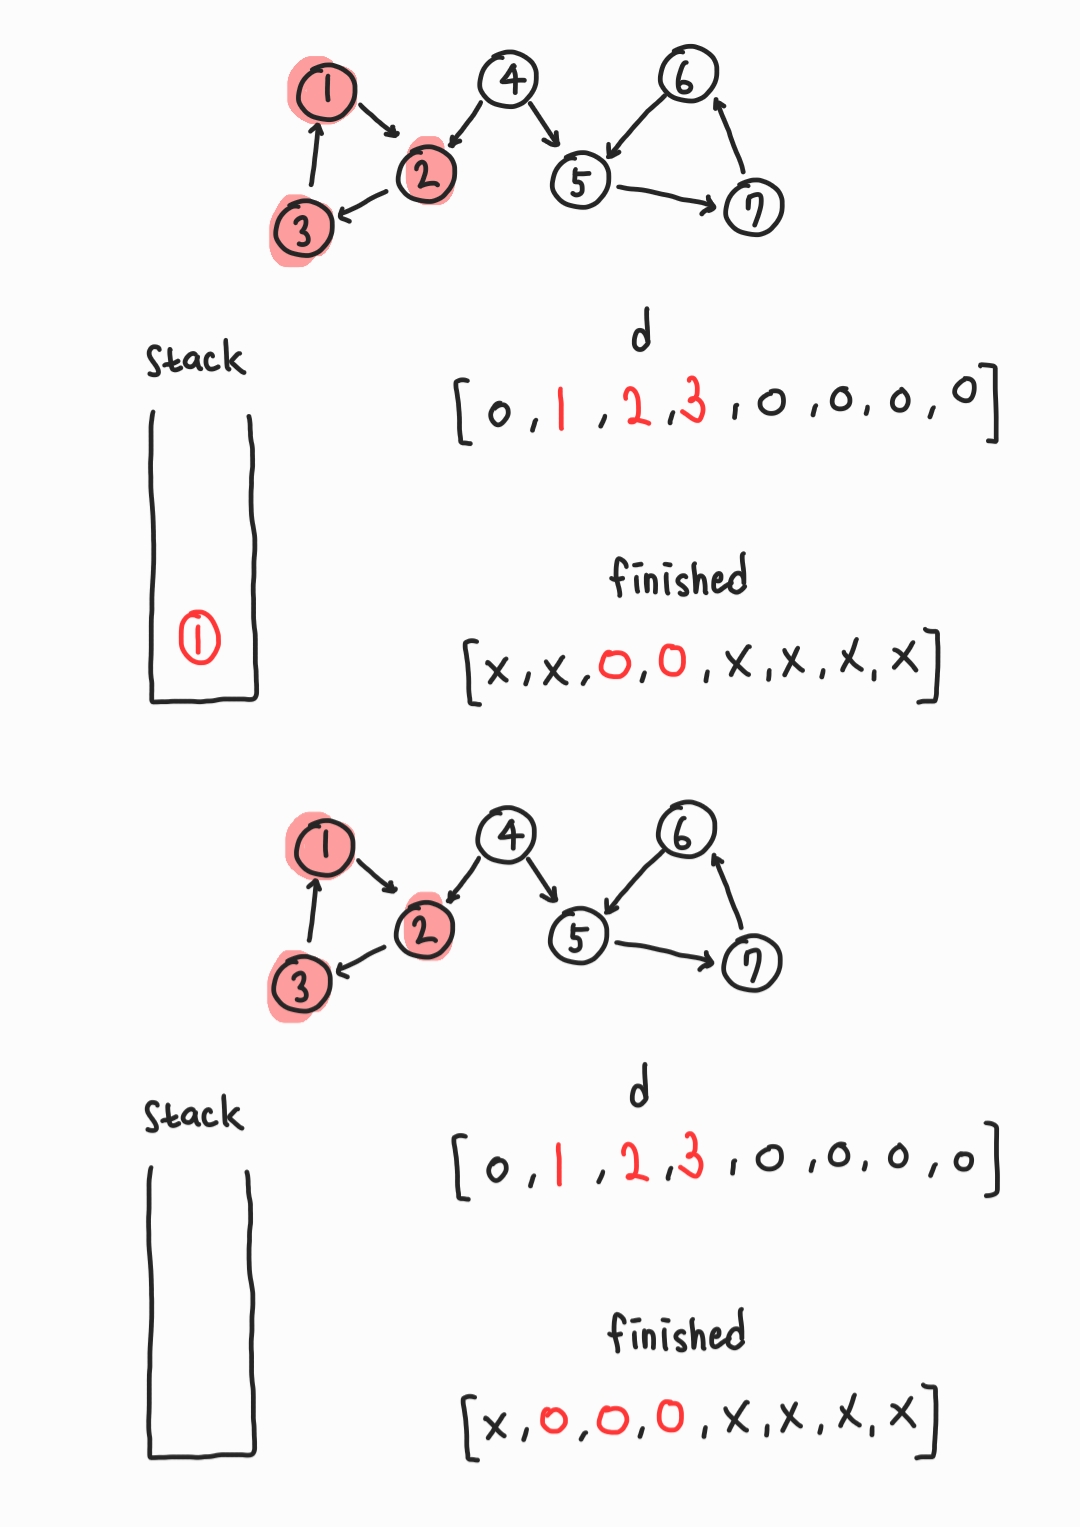 1 4 6
2 5
3 7
d
Stack
[0, 1, 2, 3, 0, 0, 0, 0]
finished
1
[x, x, 0, 0, x, x, x, x]
1 4 6
2 5
3 7
d
Stack
[0, 1, 2, 3, 0, 0, 0, 0]
finished
[x, 0, 0, 0, x, x, x, x]